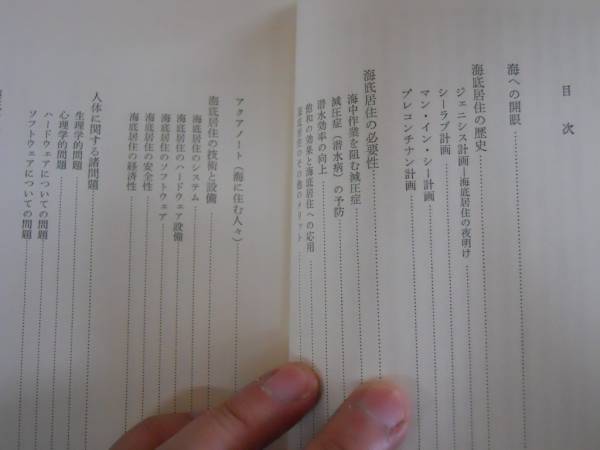 目次
海への開眼
海底居住の歴史
ジェニシス計画―海底居住の夜明け
シーラブ計画
マン・イン・シー計画
プレコンチナン計画
海底居住の必要性
海中作業を阻む減圧症
減圧症（潜水病）の予防
潜水効率の向上
飽和の効果と海底居住への応用
海底居住のその他のメリット
アクアノート（海に住む人々）
海底居住の技術と設備
海底居住のシステム
海底居住のハードウェア設備
海底居住のソフトウェア
海底居住の安全性
海底居住の経済性
人体に関する諸問題
生理学的問題
心理学的問題
ハードウェアについての問題
ソフトウェアについての問題